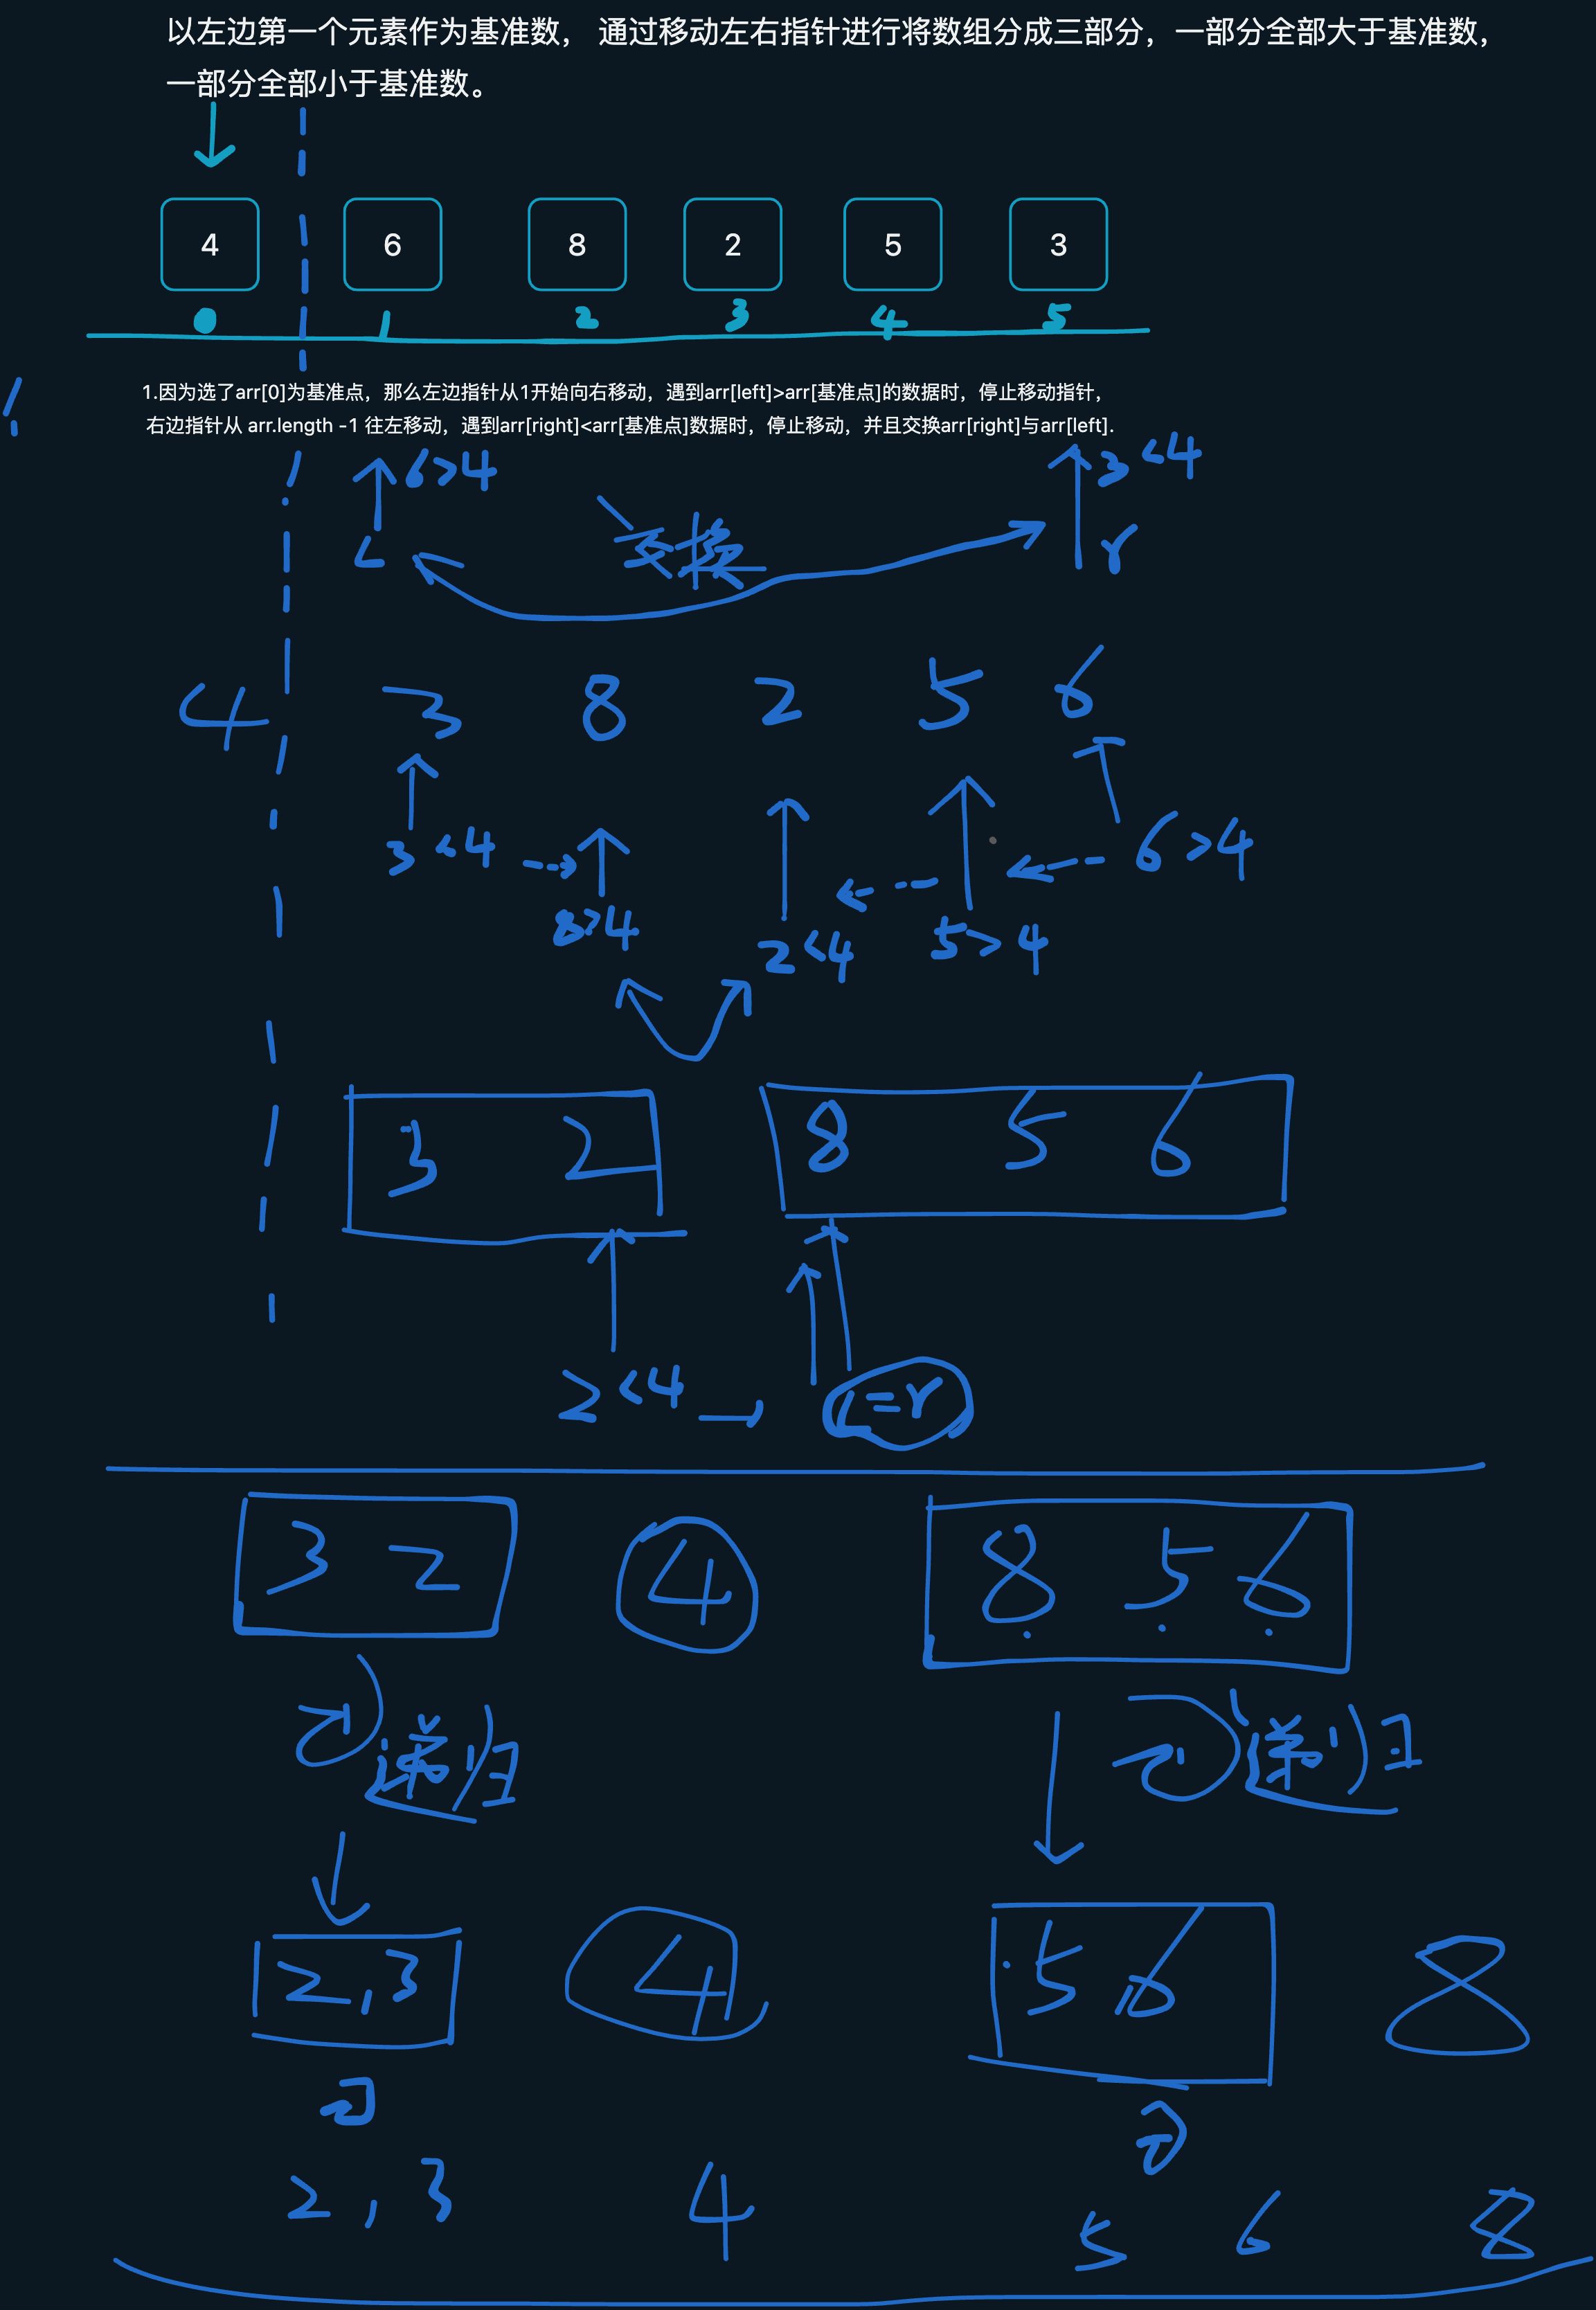 以左边第一个元素作为基准数， 通过移动左右指针进行将数组分成三部分，一部分全部大于基准数，
一部分全部小于基准数。
4 6 8 2 5 3
0 1 2 3 4 5
1.因为选了arr[0]为基准点，那么左边指针从1开始向右移动，遇到arr[left]>arr[基准点]的数据时，停止移动指针，
右边指针从 arr.length -1 往左移动，遇到arr[right]<arr[基准点]数据时，停止移动，并且交换arr[right]与arr[left].
6>4 3<4
L 交换 r
4 3 8 2 5 6
3<4 6>4
8>4 2<4 5>4
3 2 8 5 6
2<4 L=r
3 2 4 8 5 6
递归 递归
2,3 4 5 6 8
2,3 4 5 6 8